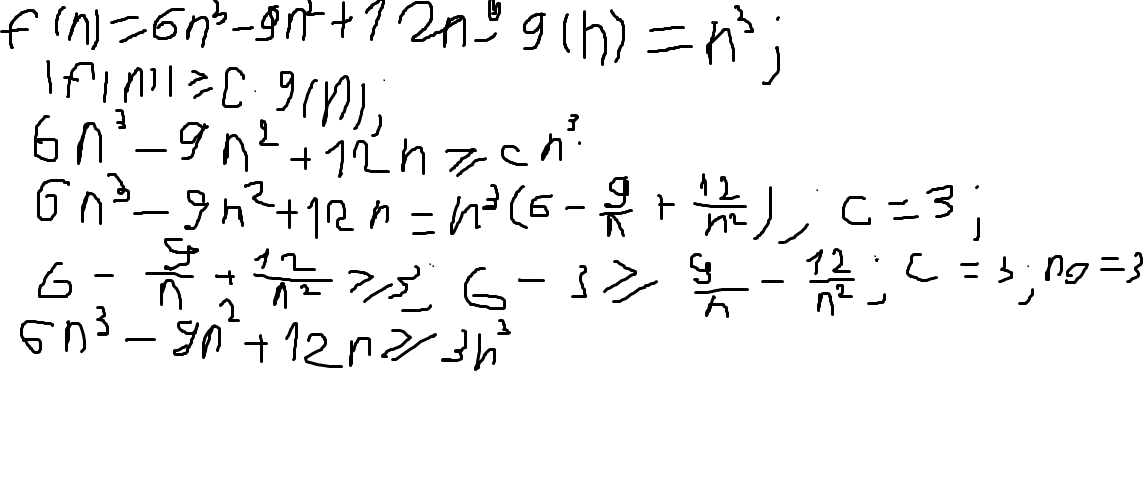 f(n)=6n³-9n²+12n; g(n)=n³;
|f(n)|≥C·g(n);
6n³-9n²+12n≥cn³.
6n³-9n²+12n=n³(6-9/n+12/n²); c=3;
6-9/n+12/n²≥3; 6-3≥9/n-12/n²; c=3; n₀=3
6n³-9n²+12n≥3n³